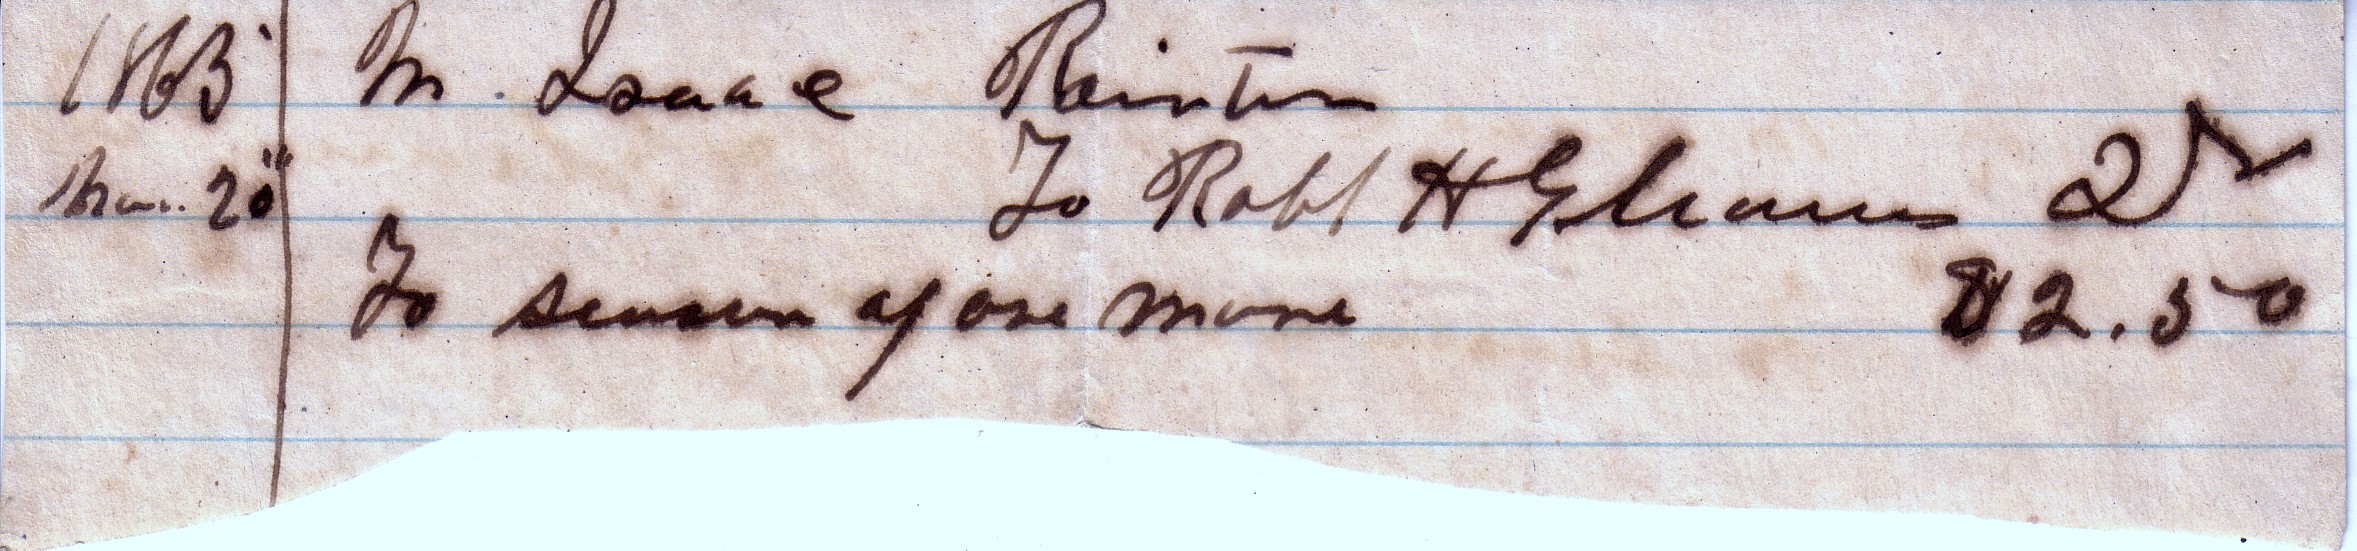 1863 M. Isaac Painter
Mar. 20" To Robt H Gleaves Dr
To season of one mare $2.50